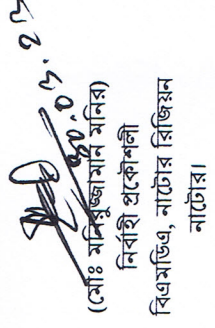 ৩০.০৩.২৩
(মোঃ মনিরুজ্জামান মনির)
নির্বাহী প্রকৌশলী
বিএমডিএ, নাটোর রিজিয়ন
নাটোর।